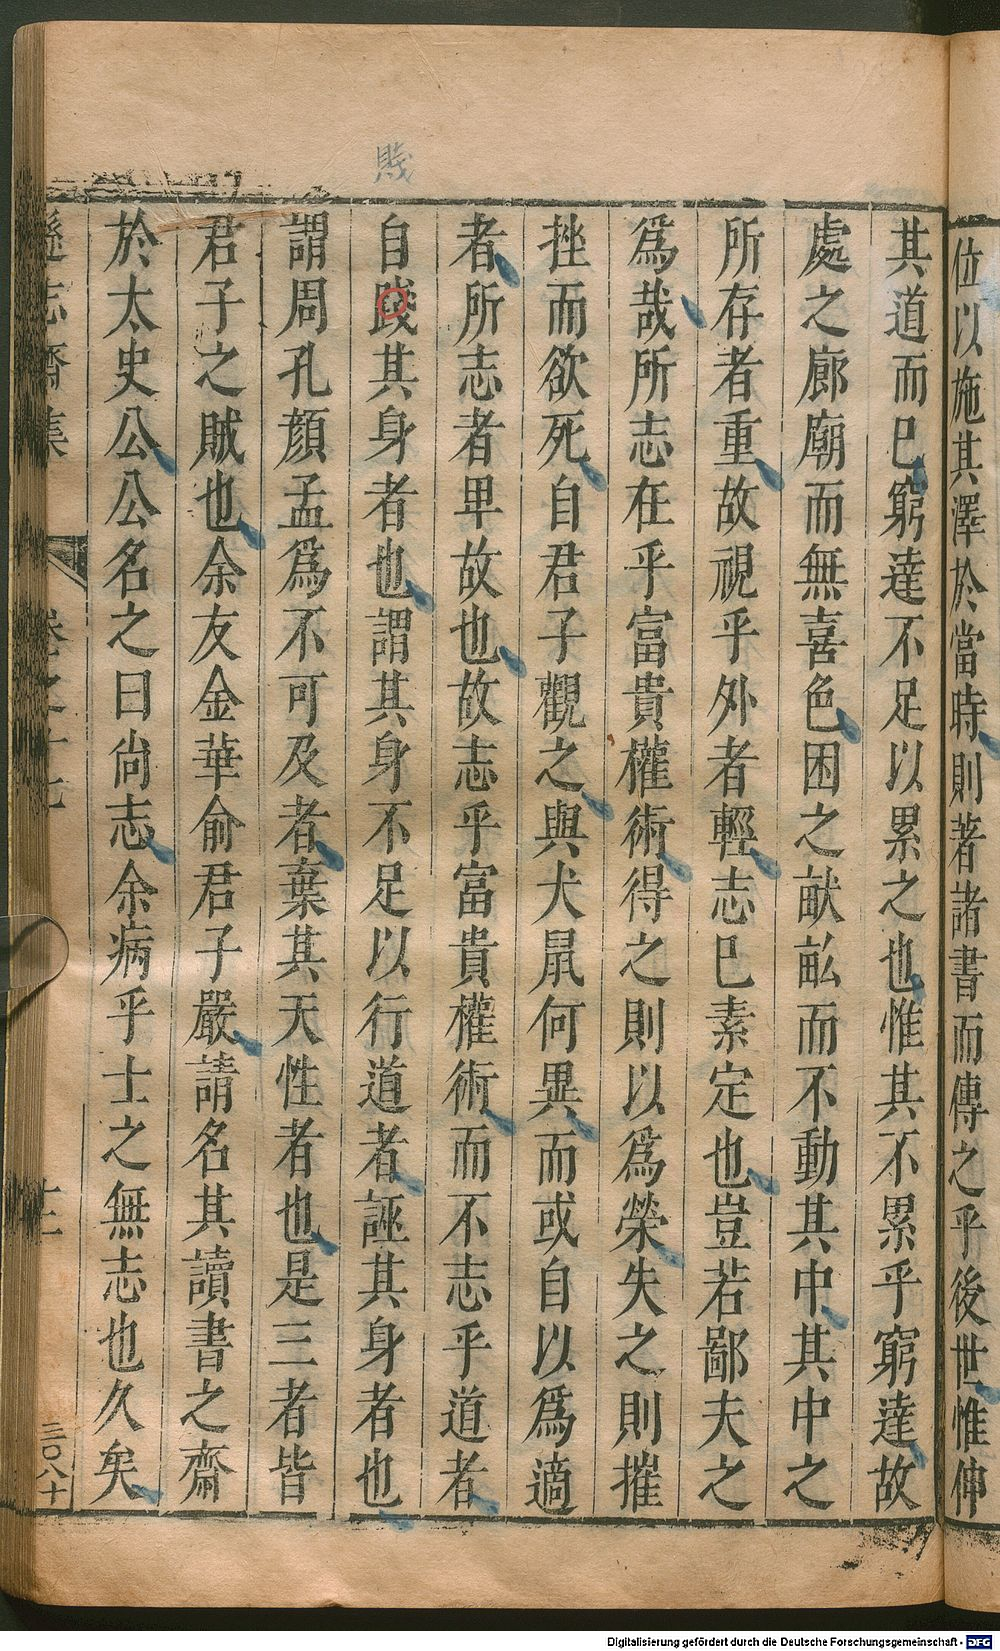 位以施其澤於當時則著諸書而傳之乎後世惟伸
其道而已窮達不足以累之也惟其不累乎窮達故
處之廊廟而無喜色困之畎畝而不動其中其中之
所存者重故視乎外者輕志已素定也豈若鄙夫之
爲哉所志在乎富貴權術得之則以爲榮失之則摧
挫而欲死自君子觀之與犬鼠何異而或自以爲適
者所志者卑故也故志乎富貴權術而不志乎道者
賤
自踐其身者也謂其身不足以行道者誣其身者也
謂周孔顔孟爲不可及者棄其天性者也是三者皆
君子之賊也余友金華俞君子嚴請名其讀書之齋
於太史公公名之曰尚志余病乎士之無志也久矣
遜志齋集 卷之十七 十二
三〇八十
Digitalisierung gefördert durch die Deutsche Forschungsgemeinschaft - DFG